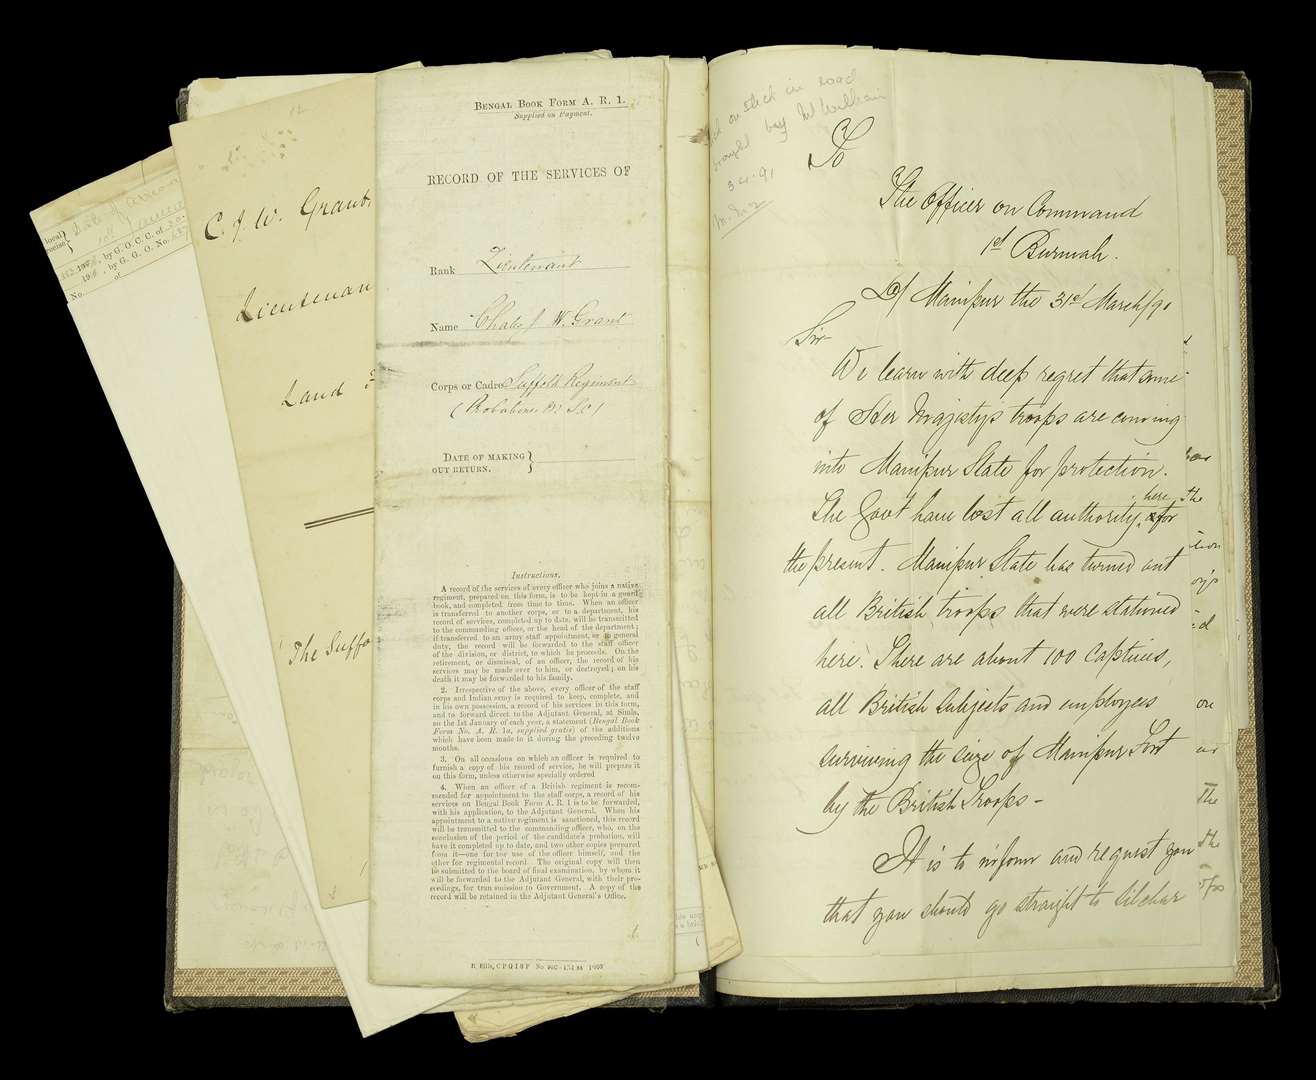 local
Date of
C. J. W. Grant
Lieutenan
Land
The Suffo
BENGAL BOOK FORM A. R. 1.
Supplied on Payment.
RECORD OF THE SERVICES OF
Rank Lieutenant
Name Chales J W. Grant
Corps or Cadre Suffolk Regiment
DATE OF MAKING
OUT RETURN.
Instructions.
A record of the services of every officer who joins a native
regiment, prepared on this form, is to be kept in a guard
book, and completed from time to time. When an officer
is transferred to another corps, or to a department, his
record of services, completed up to date, will be transmitted
to the commanding officer, or the head of the department;
if transferred to an army staff appointment, or to general
duty, the record will be forwarded to the staff officer
of the division, or district, to which he proceeds. On the
retirement, or dismissal, of an officer, the record of his
services may be made over to him, or destroyed; on his
death it may be forwarded to his family.
2. Irrespective of the above, every officer of the staff
corps and Indian army is required to keep, complete, and
in his own possession, a record of his services in this form,
and to forward direct to the Adjutant General, at Simla,
on the 1st January of each year, a statement (Bengal Book
Form No. A. R. 1a, supplied gratis) of the additions
which have been made to it during the preceding twelve
months.
3. On all occasions on which an officer is required to
furnish a copy of his record of service, he will prepare it
on this form, unless otherwise specially ordered
4. When an officer of a British regiment is recom-
mended for appointment to the staff corps, a record of his
services on Bengal Book Form A. R. 1 is to be forwarded,
with his application, to the Adjutant General. When his
appointment to a native regiment is sanctioned, this record
will be transmitted to the commanding officer, who, on the
conclusion of the period of the candidate's probation, will
have it completed up to date, and two other copies prepared
from it—one for the use of the officer himself, and the
other for regimental record. The original copy will then
be submitted to the board of final examination, by whom it
will be forwarded to the Adjutant General, with their pro-
ceedings, for transmission to Government. A copy of the
record will be retained in the Adjutant General's Office.
on stick in road
brought by
3-4-91
To
The Officer on Command
1st Burmah.
D/ Manipur the 31st March/91
Sir
We learn with deep regret that some
of Her Majestys troops are coming
into Manipur State for protection.
The Govt have lost all authority here for
the present. Manipur State has turned out
all British troops that were stationed
here. There are about 100 Captives,
all British subjects and employes
surviving the size of Manipur Fort
by the British Troops -
It is to inform and request you
that you should go straight to Silchar